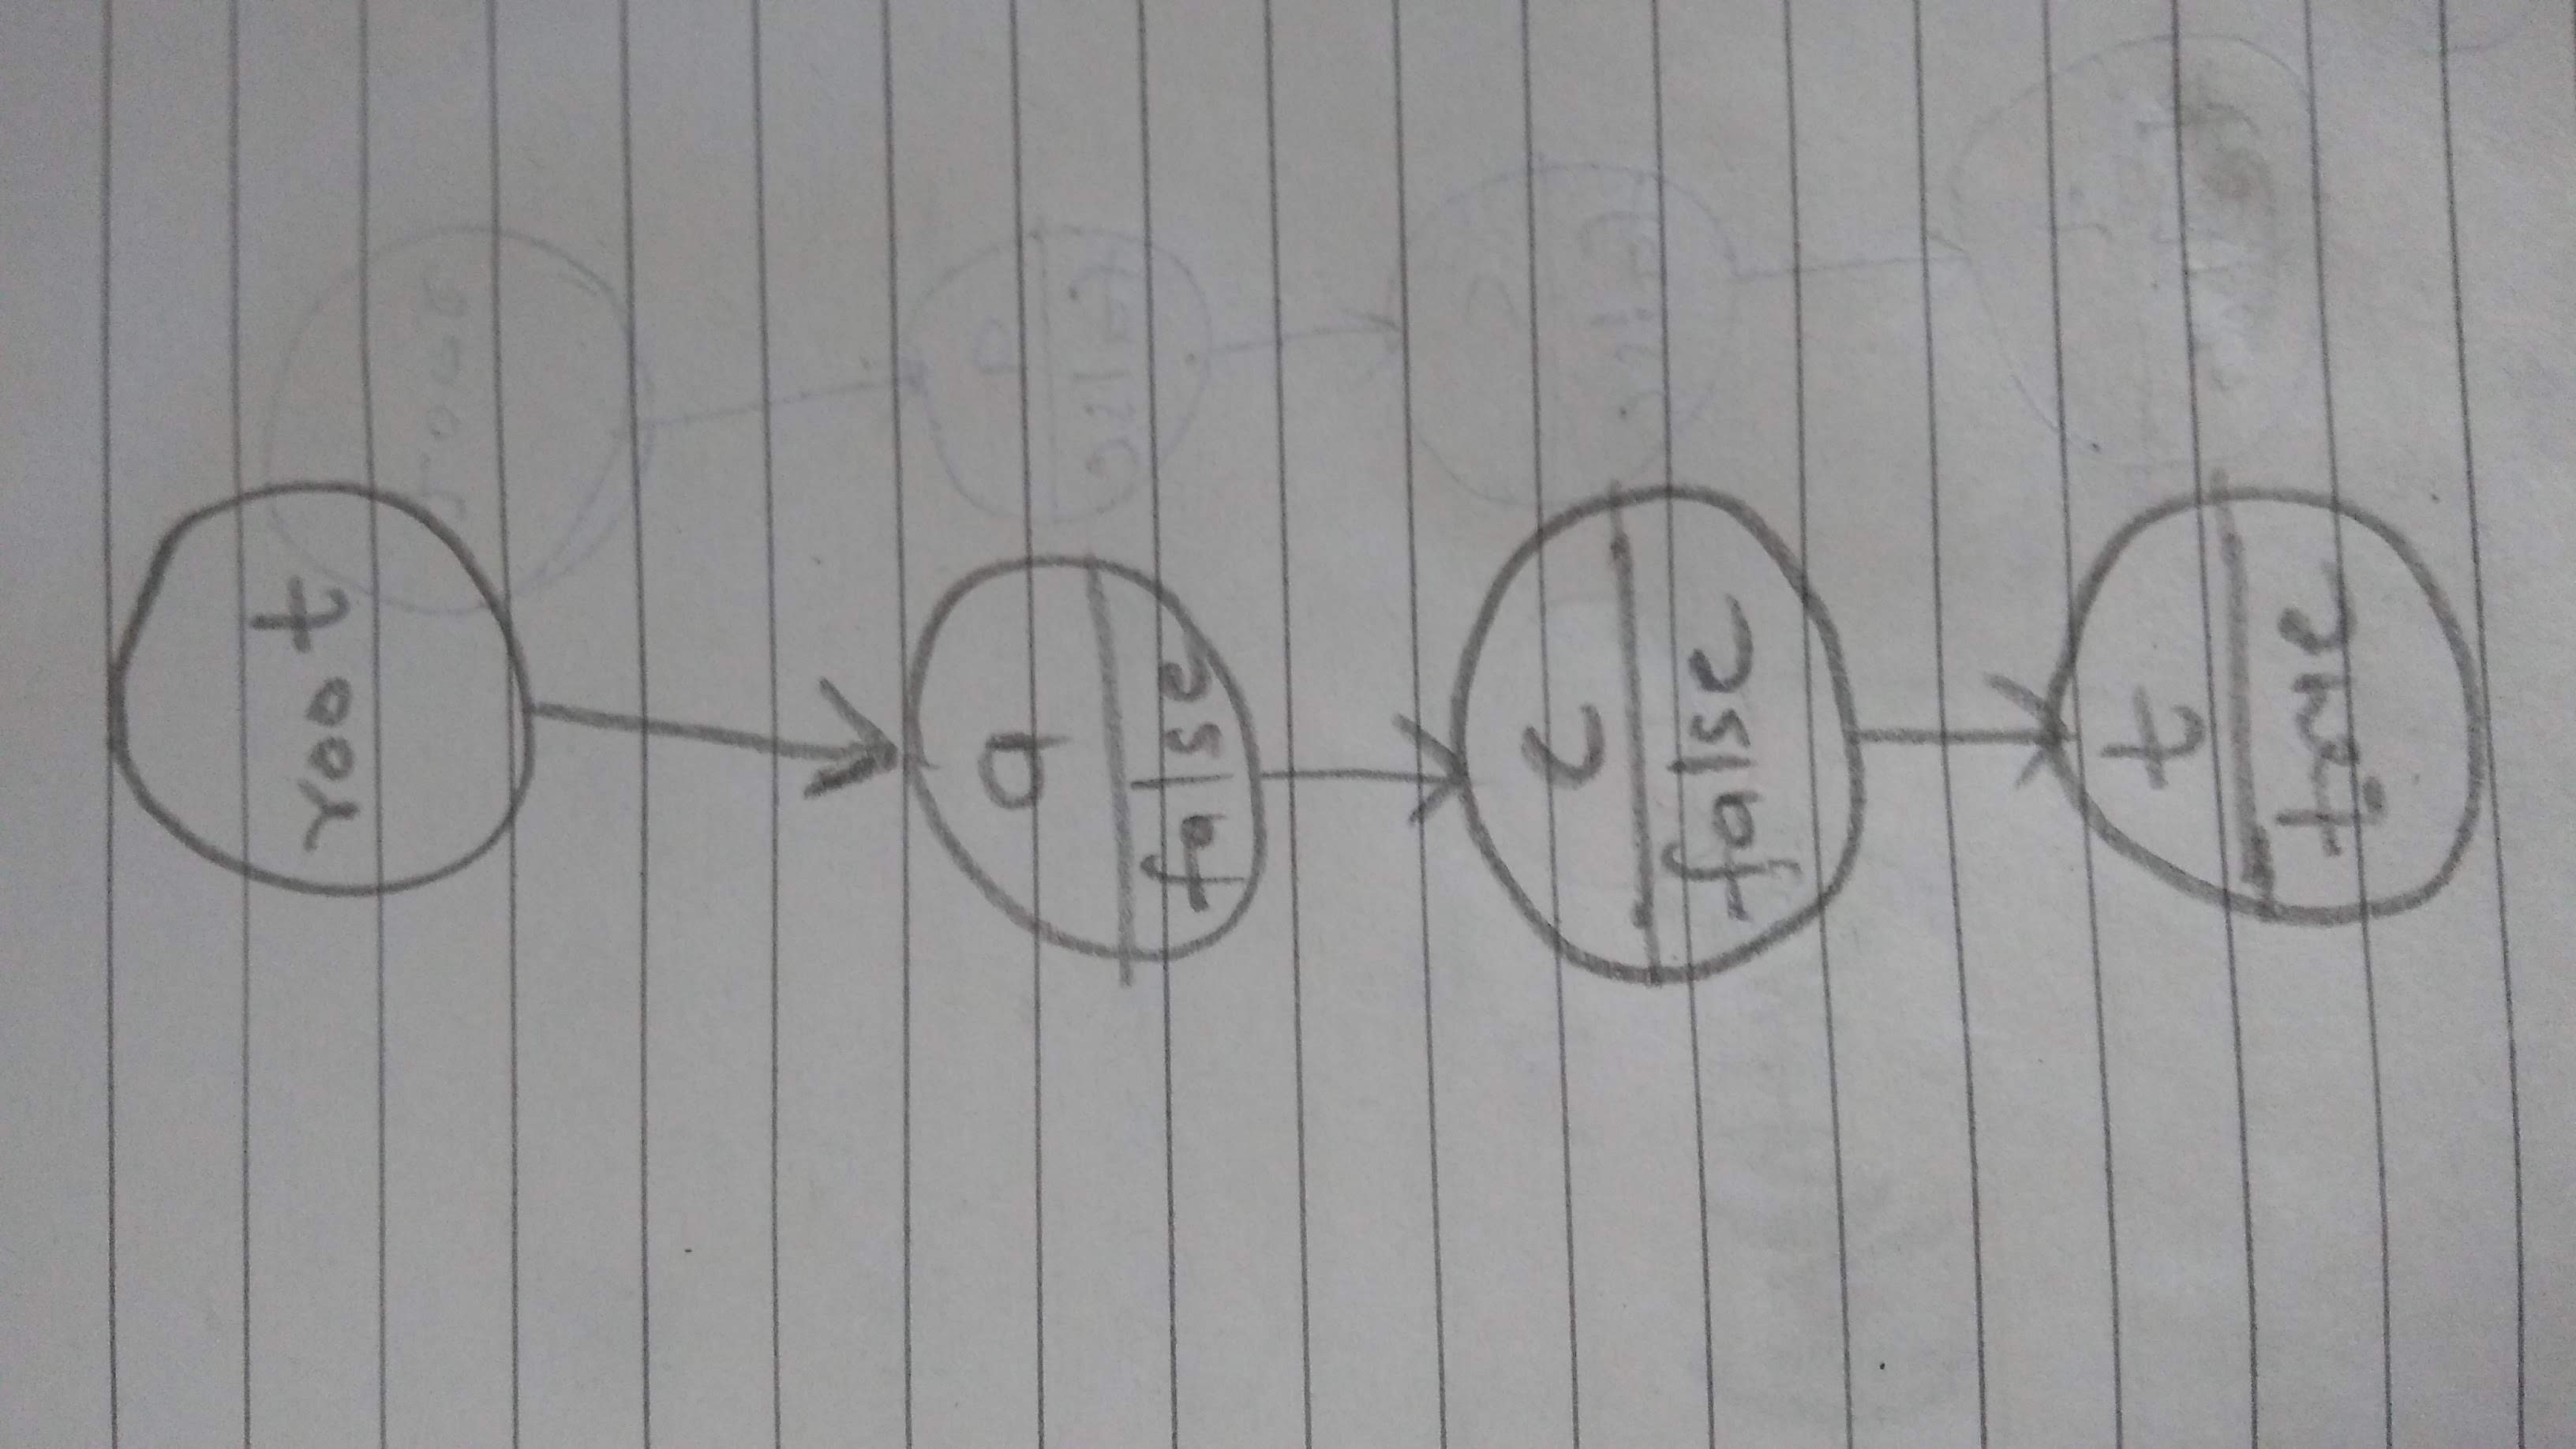 root
a
false
c
false
t
true